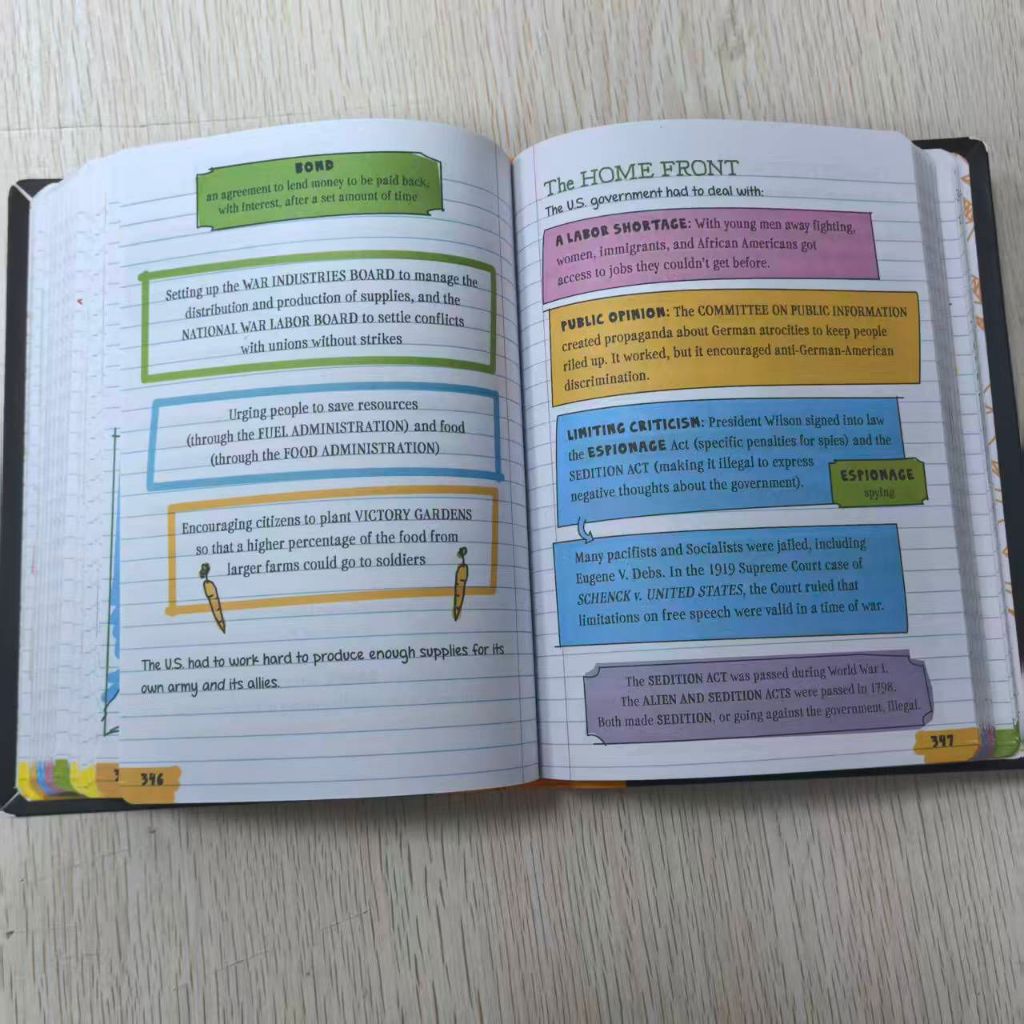 BOND
an agreement to lend money to be paid back,
with interest, after a set amount of time
Setting up the WAR INDUSTRIES BOARD to manage the
distribution and production of supplies, and the
NATIONAL WAR LABOR BOARD to settle conflicts
with unions without strikes
Urging people to save resources
(through the FUEL ADMINISTRATION) and food
(through the FOOD ADMINISTRATION)
Encouraging citizens to plant VICTORY GARDENS
so that a higher percentage of the food from
larger farms could go to soldiers
The U.S. had to work hard to produce enough supplies for its
own army and its allies.
346
The HOME FRONT
The U.S. government had to deal with:
A LABOR SHORTAGE: With young men away fighting,
women, immigrants, and African Americans got
access to jobs they couldn't get before.
PUBLIC OPINION: The COMMITTEE ON PUBLIC INFORMATION
created propaganda about German atrocities to keep people
riled up. It worked, but it encouraged anti-German-American
discrimination.
LIMITING CRITICISM: President Wilson signed into law
the ESPIONAGE Act (specific penalties for spies) and the
SEDITION ACT (making it illegal to express
negative thoughts about the government).
ESPIONAGE
spying
Many pacifists and Socialists were jailed, including
Eugene V. Debs. In the 1919 Supreme Court case of
SCHENCK v. UNITED STATES, the Court ruled that
limitations on free speech were valid in a time of war.
The SEDITION ACT was passed during World War I.
The ALIEN AND SEDITION ACTS were passed in 1798.
Both made SEDITION, or going against the government, illegal.
347